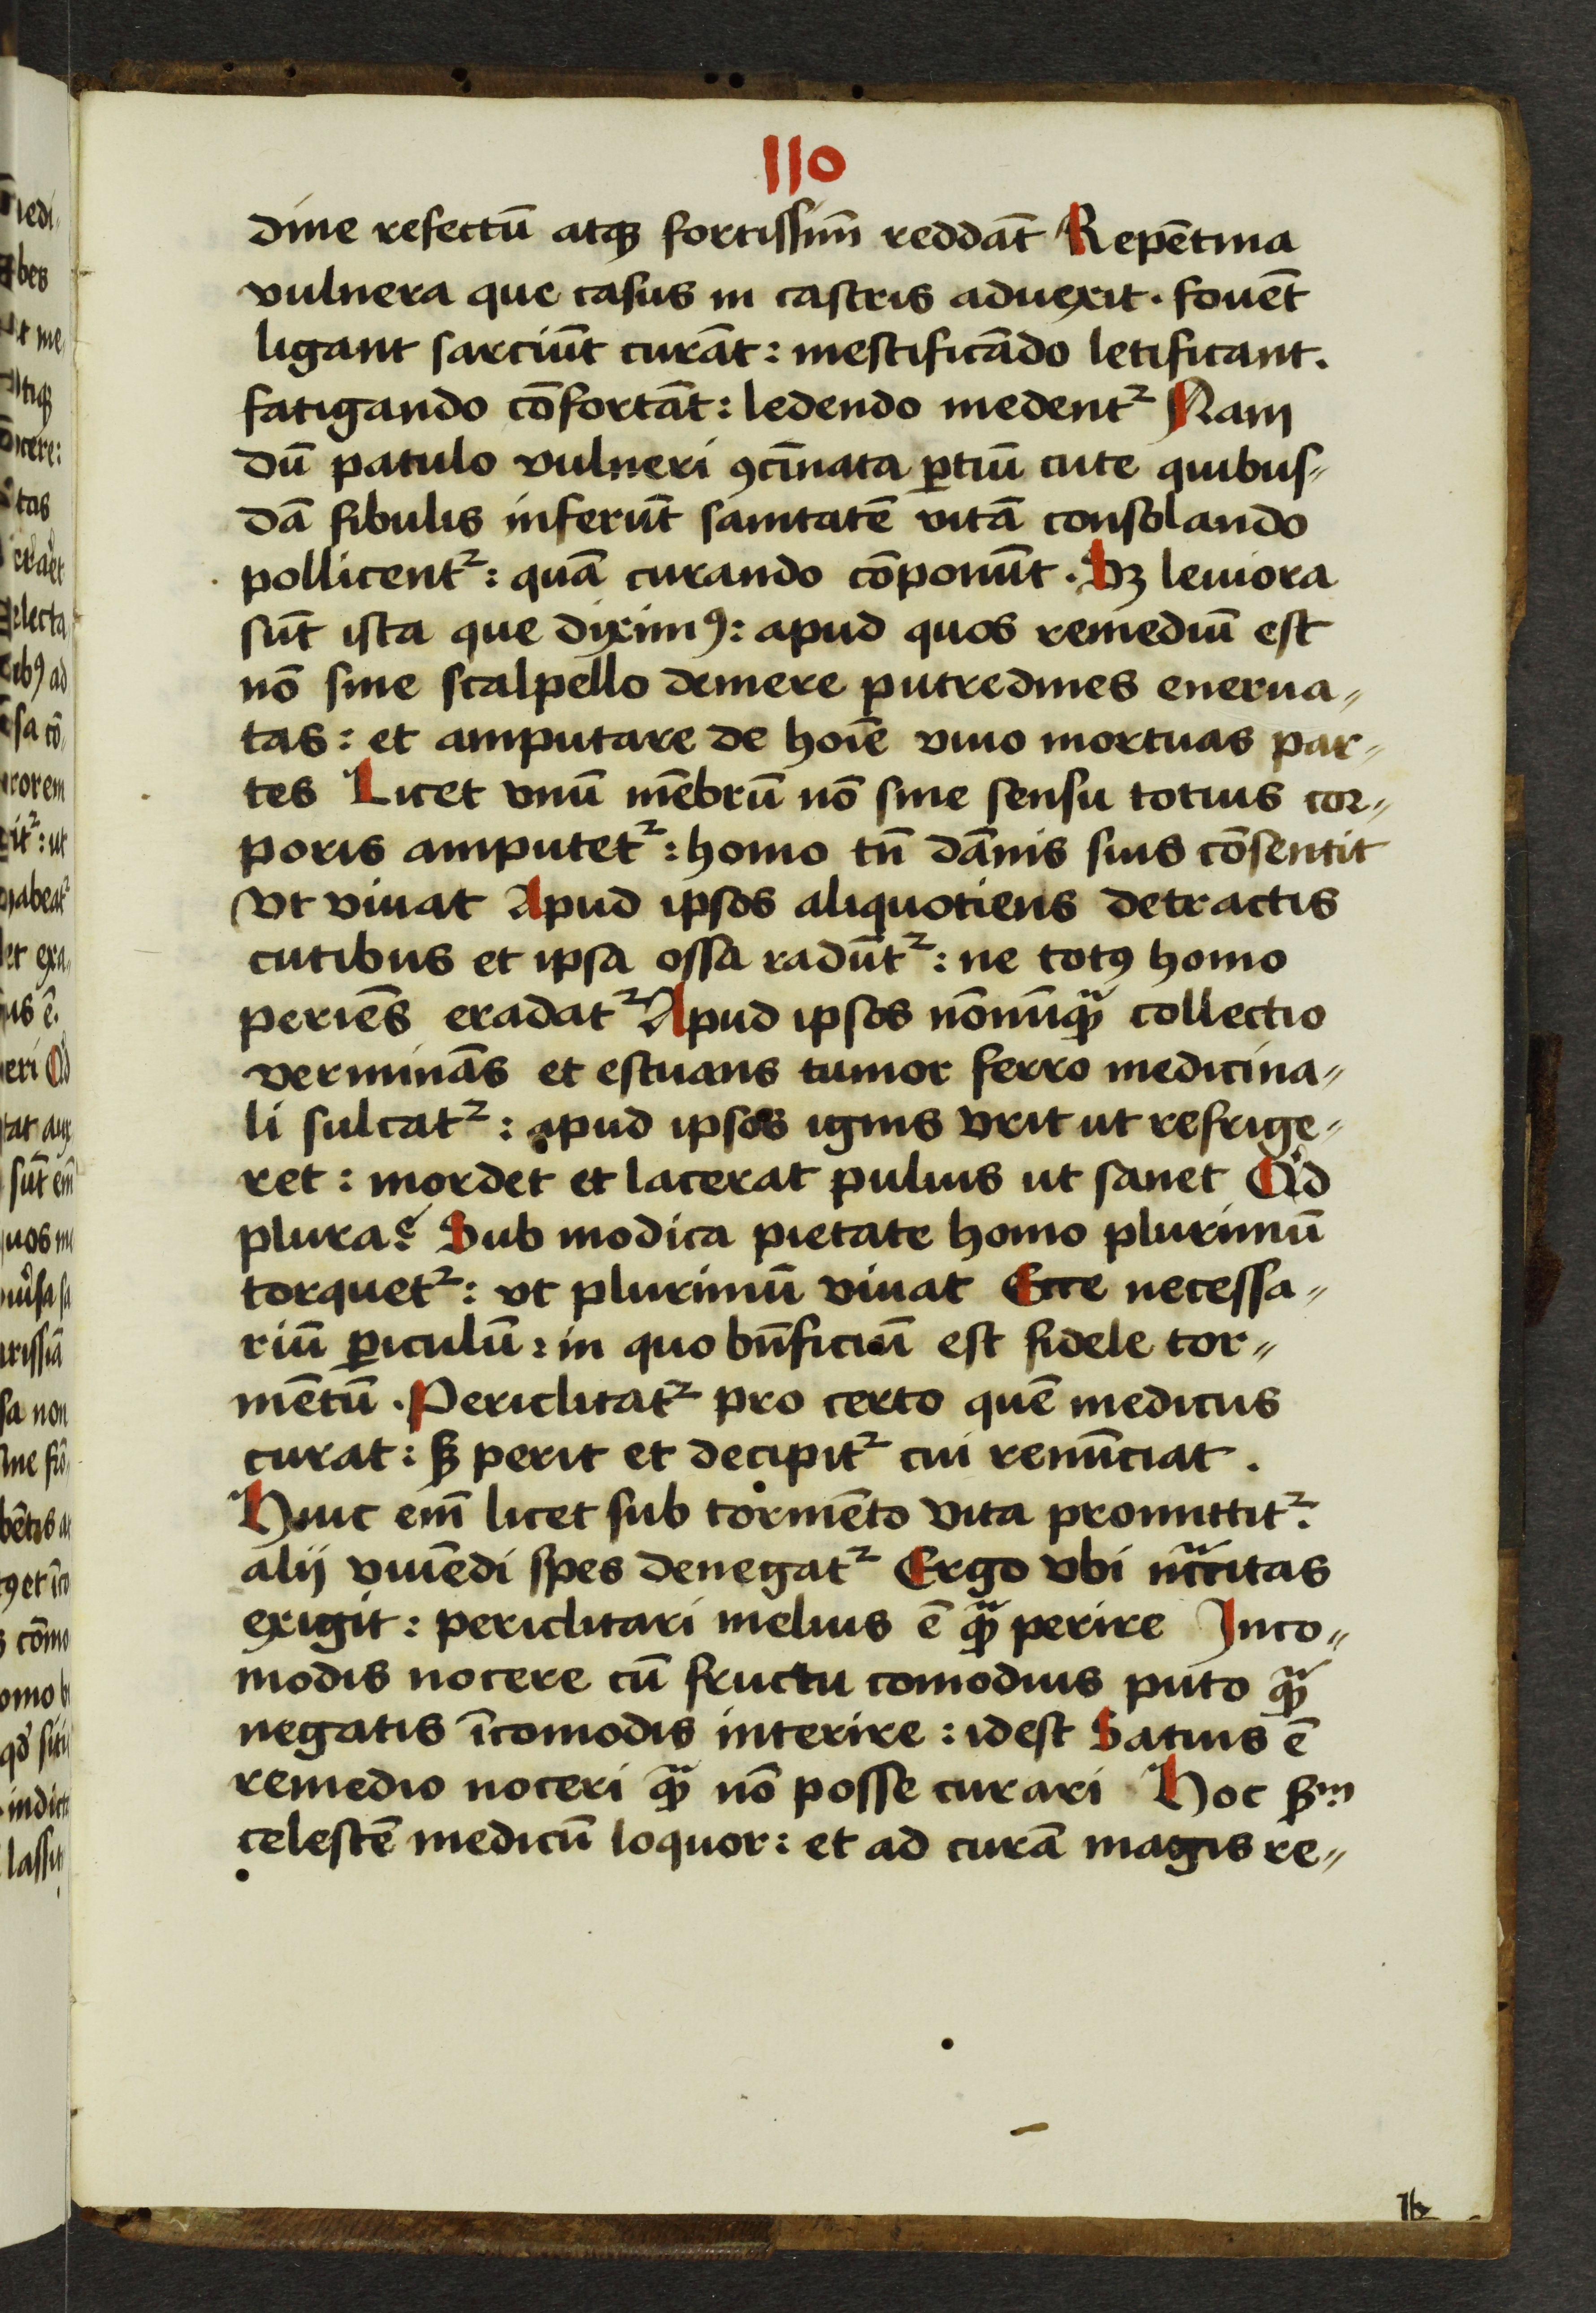 110
dine refectū atqꝫ fortissim̄ reddāt Repētina
vulnera que casus in castris aduexit. fouēt
ligant sarciūt curāt: mestificādo letificant.
fatigando cōfortāt: ledendo medentᷣ Nam
dū patulo vulneri ꝯcīnata ꝑtiū cute quibus⸗
dā fibulis inferūt sanitatē vitā consolando
pollicentᷣ: quā curando cōponūt. Sꝫ leuiora
sūt ista que diximꝰ: apud quos remediū est
nō sine scalpello demere putredines enerua⸗
tas: et amputare de hoīe viuo mortuas par⸗
tes Licet vnū mēbrū nō sine sensu totius cor⸗
poris amputetᷣ: homo tn̄ dānis suis cōsentit
Vt viuat Apud ipsos aliquotiens detractis
cutibus et ipsa ossa radūtᷣ: ne totꝰ homo
periēs eradatᷣ Apud ipsos nōnūqᷓꝫ collectio
verminās et estuans tumor ferro medicina⸗
li sulcatᷣ: apud ipsos ignis vrit ut refrige⸗
ret: mordet et lacerat puluis ut sanet Qͥd
plura? Sub modica pietate homo plurimū
torquetᷣ: vt plurimū viuat Ecce necessa⸗
riū ꝑiculū: in quo bn̄ficiū est fidele tor⸗
mētū. Periclitatᷣ pro certo quē medicus
curat: sꝫ perit et decipitᷣ cui renūciat.
Huic em̄ licet sub tormēto vita promittitᷣ:
alij viuēdi spes denegatᷣ Ergo vbi nc̄citas
exigit: periclitari melius ē qᷓꝫ perire Inco⸗
modis nocere cū fructu comodius puto qᷓꝫ
negatis īcomodis interire: idest Satius ē
remedio noceri qᷓꝫ nō posse curari Hoc ẜm
celestē medicū loquor: et ad curā magis re⸗